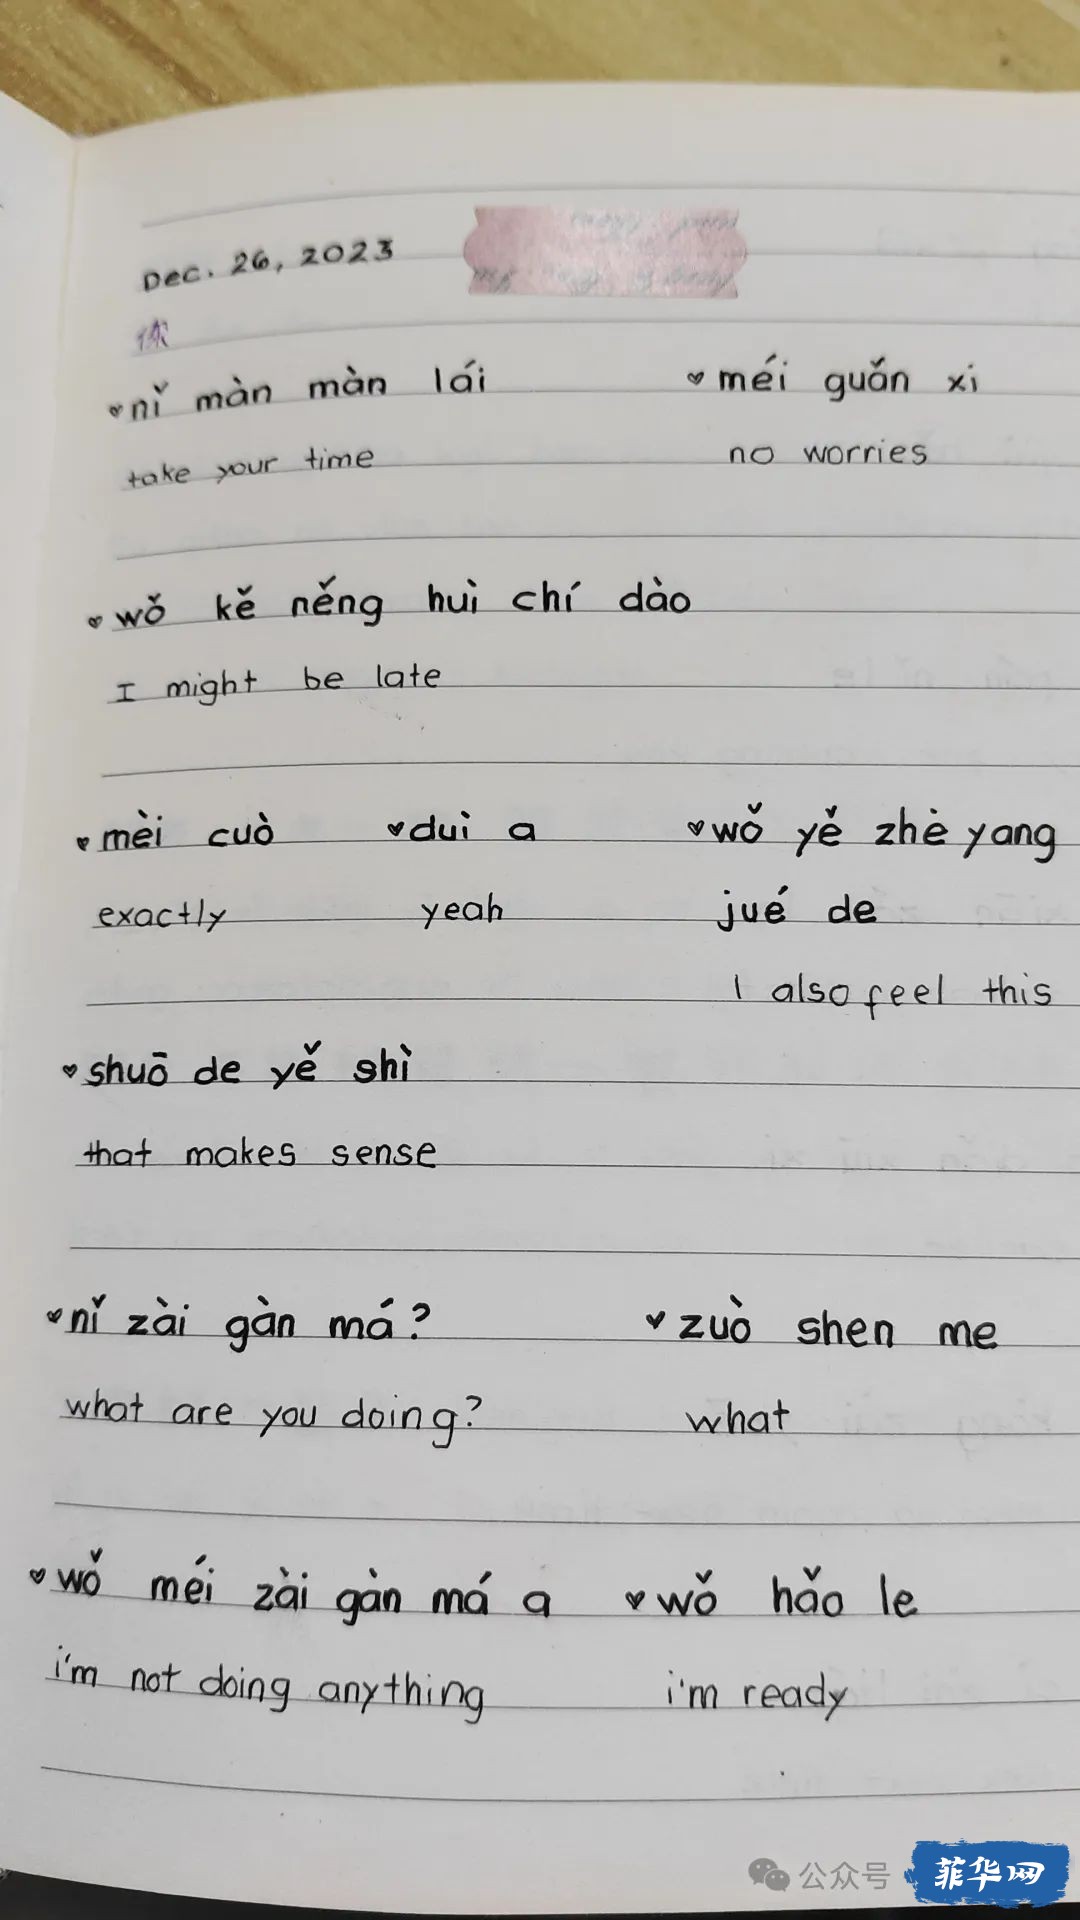 Dec. 26, 2023
nǐ màn màn lái
méi guǎn xi
take your time
no worries
wǒ kě něng huì chí dào
I might be late
mèi cuò
duì a
wǒ yě zhè yang
jué de
exactly
yeah
I also feel this
shuō de yě shì
that makes sense
nǐ zài gàn má?
zuò shen me
what are you doing?
what
wǒ méi zài gàn má a
wǒ hǎo le
i'm not doing anything
i'm ready
公众号
菲华网